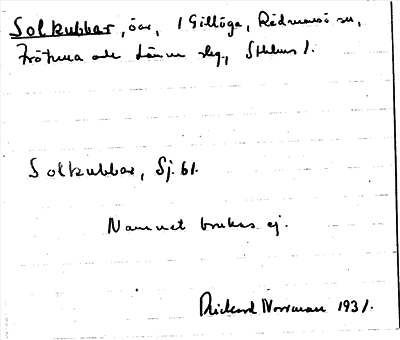 Solkubbar, öar, i Gillöga, Rådmansö sn,
Frötuna och Länna slg, Sthlms l.
Solkubbar, Sj.bl.
Namnet brukas ej.
Rickard Norrman 1931.